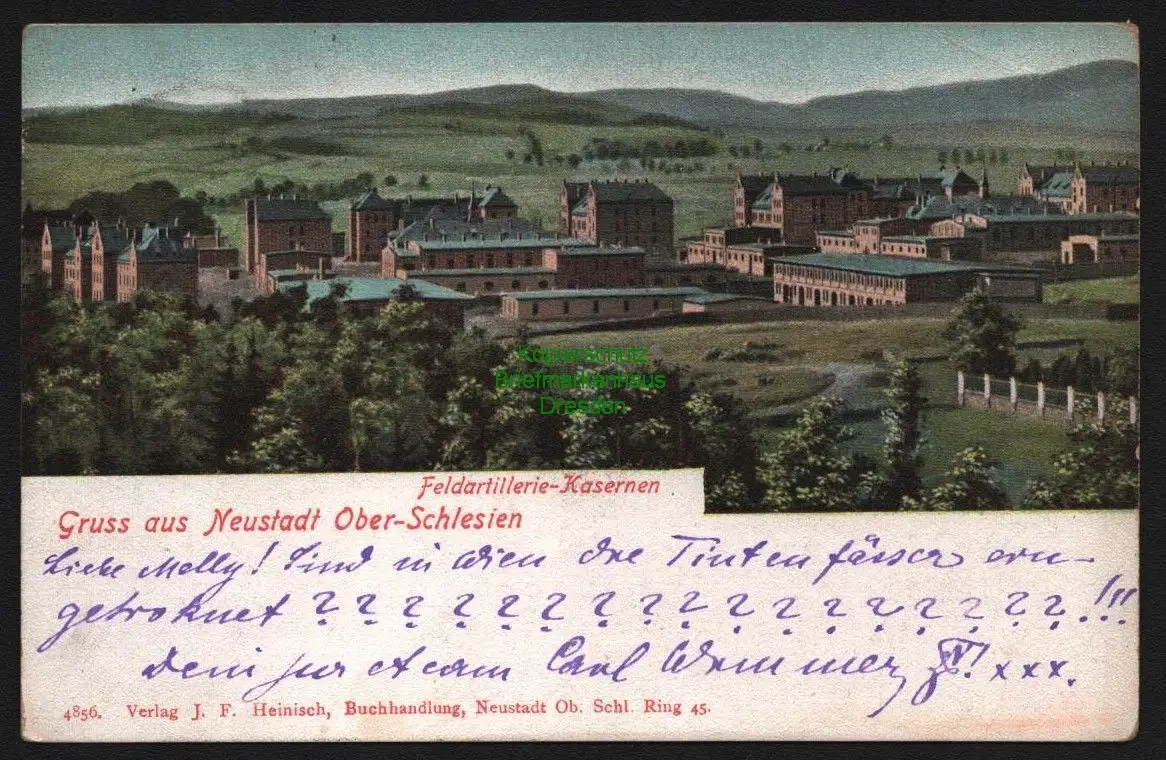 Kotzerschutz
Briefmarkenhaus
Dresden
Feldartillerie-Kasernen
Gruss aus Neustadt Ober-Schlesien
Liebe Melly! Sind in Wien die Tintenfässer ein-
getroknet ? ? ? ? ? ? ? ? ? ? ? ? ? ? ? ? ? !!!
Dein Carl x x x.
4856. Verlag J. F. Heinisch, Buchhandlung, Neustadt Ob. Schl. Ring 45.